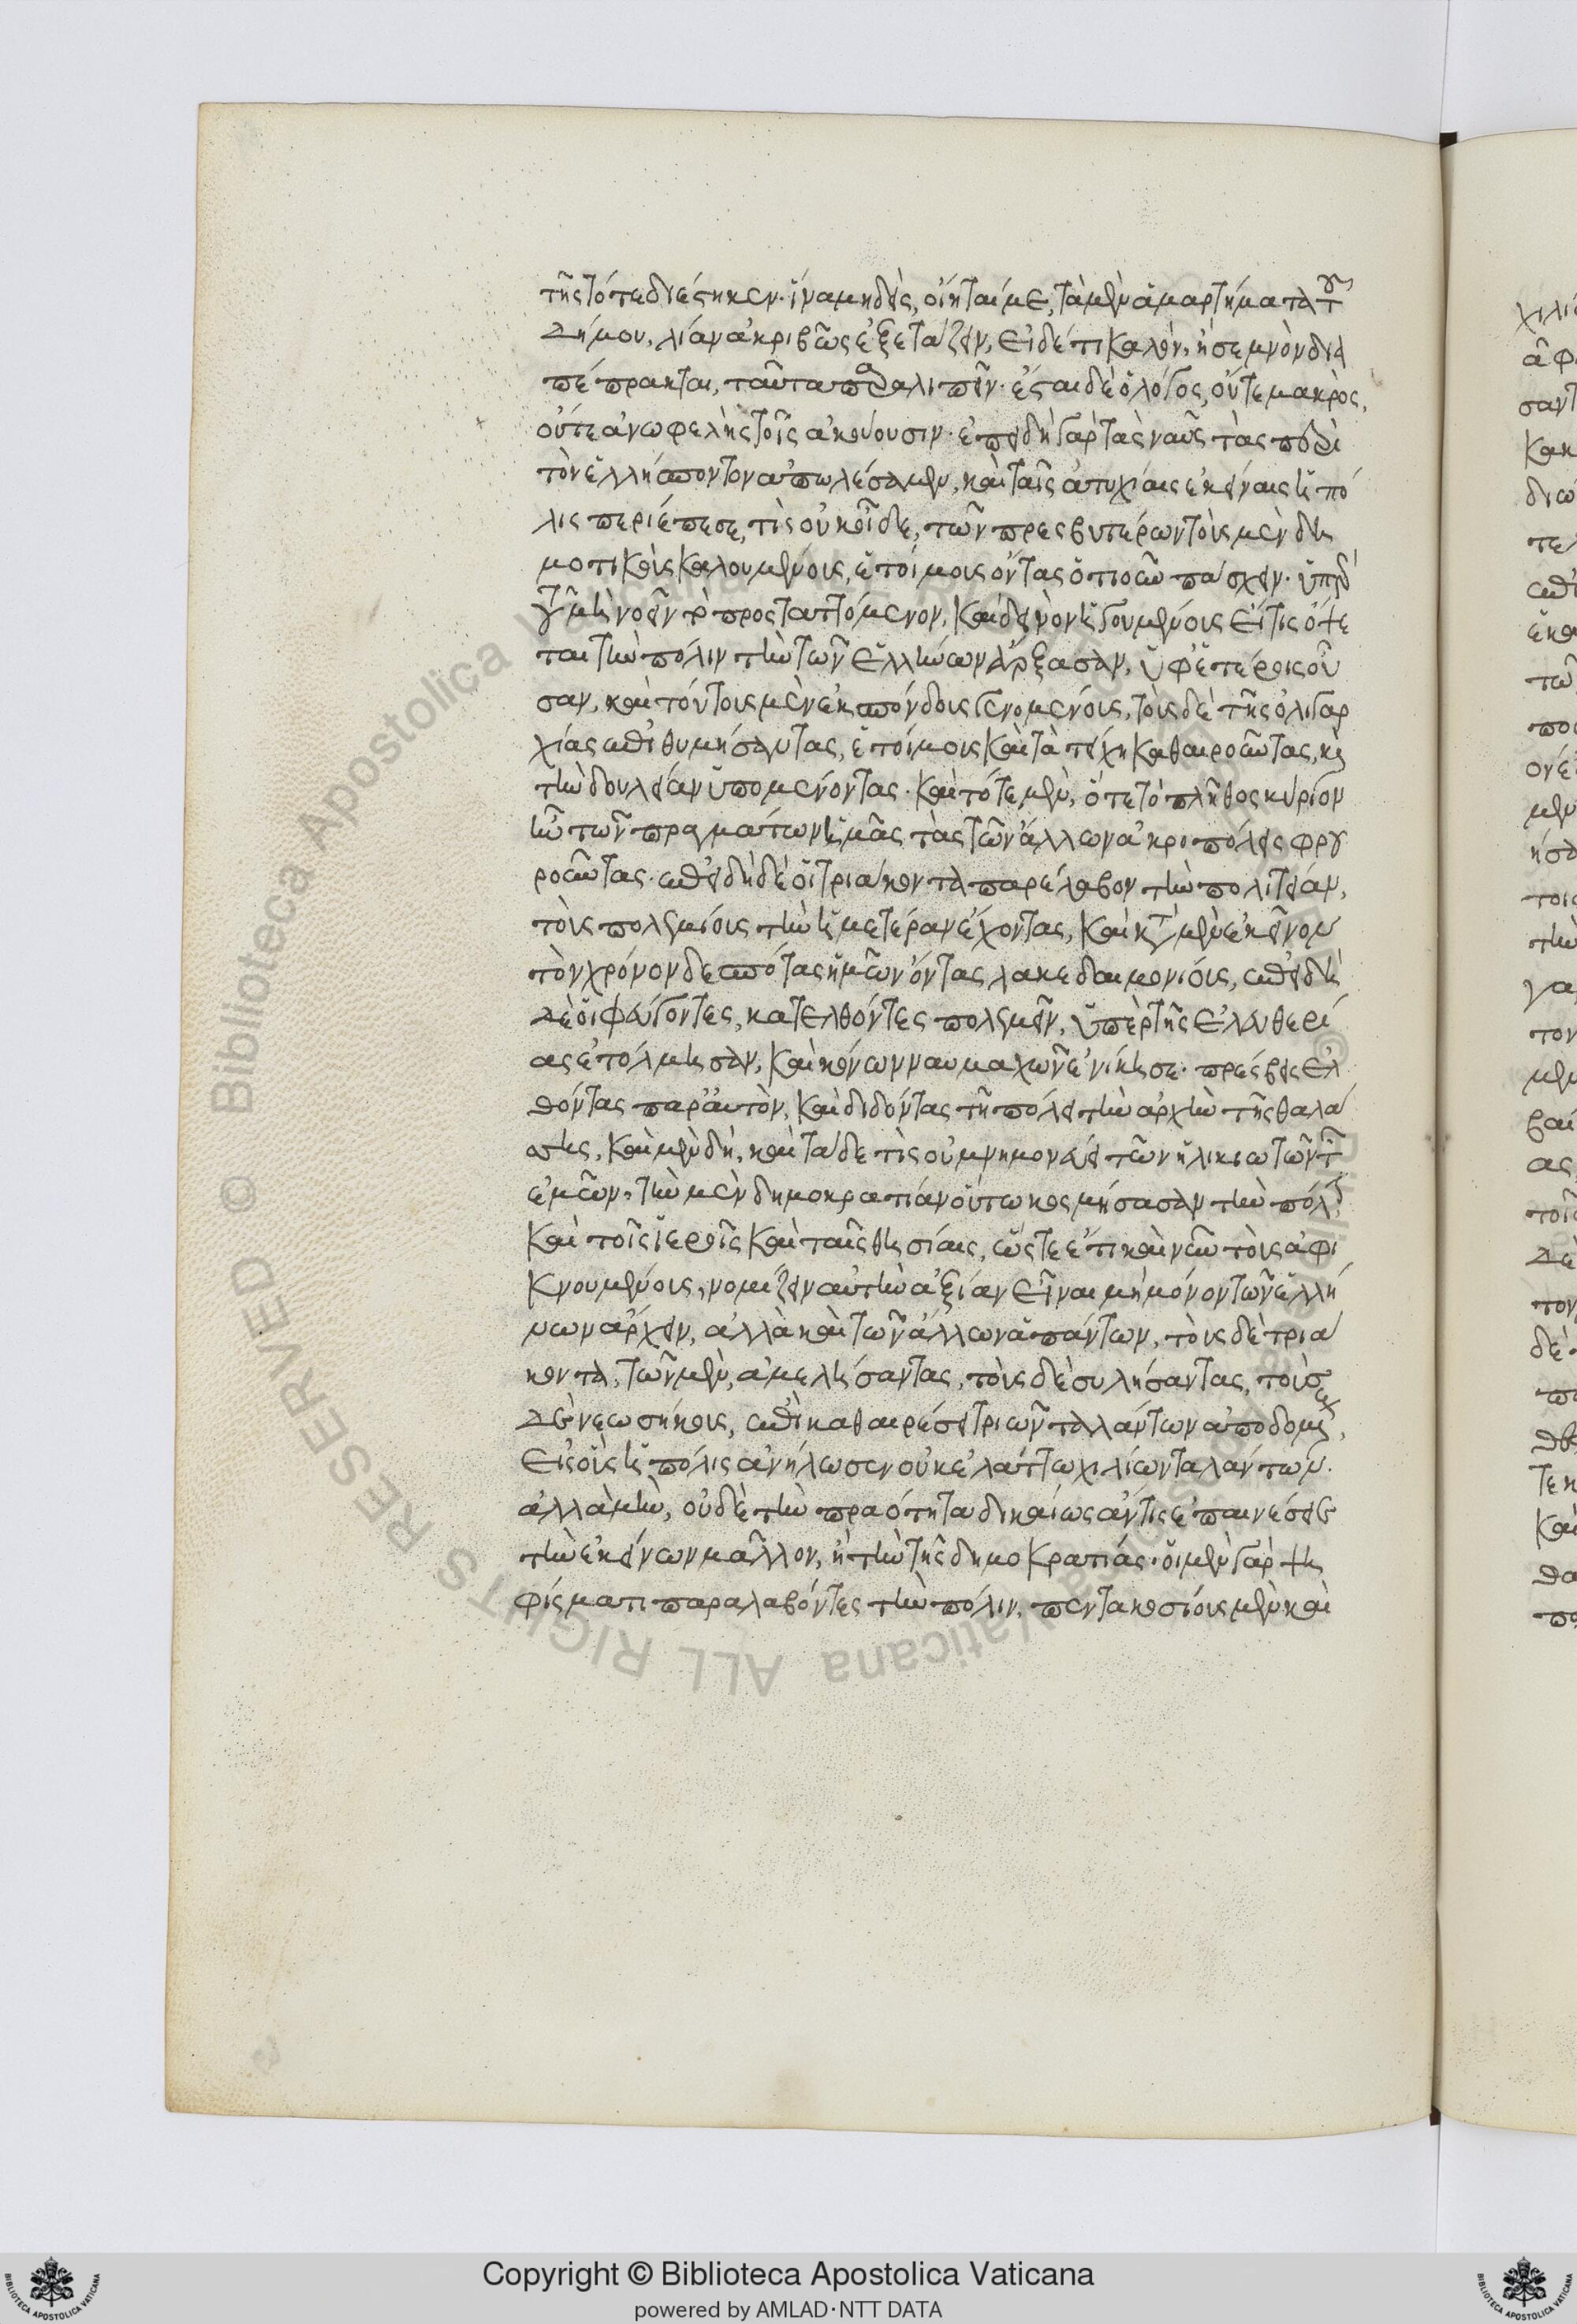 τῆς τότε διέστηκεν· ἵνα μηδεὶς, οἴηταί με, τὰ μὲν ἁμαρτήματα τοῦ
δήμου, λίαν ἀκριβῶς ἐξετάζειν, εἰ δέ τι καλὸν, ἢ σεμνὸν δια
πέπρακται, ταῦτα παραλιπεῖν· ἔσται δὲ ὁ λόγος, οὔτε μακρὸς,
οὔτε ἀνωφελὴς τοῖς ἀκούουσιν· ἐπειδὴ γὰρ τὰς ναῦς τὰς περὶ
τὸν ἑλλήσποντον ἀπωλέσαμεν, καὶ ταῖς ἀτυχίαις ἐκείναις ἡ πό
λις περιέπεσε, τίς οὐκ οἶδε, τῶν πρεσβυτέρων τοὺς μὲν δη
μοτικοὺς καλουμένους, ἑτοίμους ὄντας ὁτιοῦν πάσχειν· ὑπὲρ
τοῦ μὴ ποεῖν τὸ προσταττόμενον, καὶ δεινὸν ἡγουμένους εἴ τις ὄψε
ται τὴν πόλιν τὴν τῶν ἑλλήνων ἄρξασαν, ὑφ' ἑτέροις οὖ
σαν, καὶ τούτους μὲν ἐκσπόνδους γενομένους, τοὺς δὲ τῆς ὀλιγαρ
χίας ἐπιθυμήσαντας, ἑτοίμως καὶ τὰ τείχη καθαιροῦντας, καὶ
τὴν δουλείαν ὑπομένοντας· καὶ τότε μὲν, ὅτε τὸ πλῆθος κύριον
ἦν τῶν πραγμάτων ἡμᾶς τὰς τῶν ἄλλων ἀκροπόλεις φρου
ροῦντας· ἐπειδὴ δὲ οἱ τριάκοντα παρέλαβον τὴν πολιτείαν,
τοὺς πολεμίους τὴν ἡμετέραν ἔχοντας, καὶ κατὰ μὲν ἐκεῖνον
τὸν χρόνον δεσπότας ἡμῶν ὄντας λακεδαιμονίους, ἐπειδὴ
δὲ οἱ φεύγοντες, κατελθόντες πολεμεῖν, ὑπὲρ τῆς ἐλευθερί
ας ἐτόλμησαν, καὶ κόνων ναυμαχῶν ἐνίκησε· πρέσβεις ἐλ
θόντας παρ' αὐτὸν, καὶ διδόντας τῇ πόλει τὴν ἀρχὴν τῆς θαλά
σσης, καὶ μὲν δὴ, καὶ τάδε τίς οὐ μνημονεύει τῶν ἡλικιωτῶν τῶν
ἐμῶν, τὴν μὲν δημοκρατίαν οὕτω κοσμήσασαν τὴν πόλιν
καὶ τοῖς ἱεροῖς καὶ ταῖς θυσίαις, ὥστε ἔτι καὶ νῦν τοὺς ἀφι
κνουμένους, νομίζειν αὐτὴν ἀξίαν εἶναι μὴ μόνον τῶν ἑλλή
νων ἄρχειν, ἀλλὰ καὶ τῶν ἄλλων ἁπάντων, τοὺς δὲ τριά
κοντα, τῶν μὲν, ἀμελήσαντας, τοὺς δὲ συλήσαντας, τοὺς
δὲ νεωσοίκους, ἐπὶ καθαιρέσει τριῶν ταλάντων ἀποδομένους,
εἰς οὓς ἡ πόλις ἀνήλωσεν οὐκ ἐλάττω χιλίων ταλάντων·
ἀλλὰ μὴν, οὐδὲ τὴν πραότητα δικαίως ἄν τις ἐπαινέσειε
τὴν ἐκείνων μᾶλλον, ἢ τὴν τῆς δημοκρατίας· οἱ μὲν γὰρ ψη
φίσματι παραλαβόντες τὴν πόλιν, πεντακοσίους μὲν καὶ
Copyright © Biblioteca Apostolica Vaticana
powered by AMLAD·NTT DATA